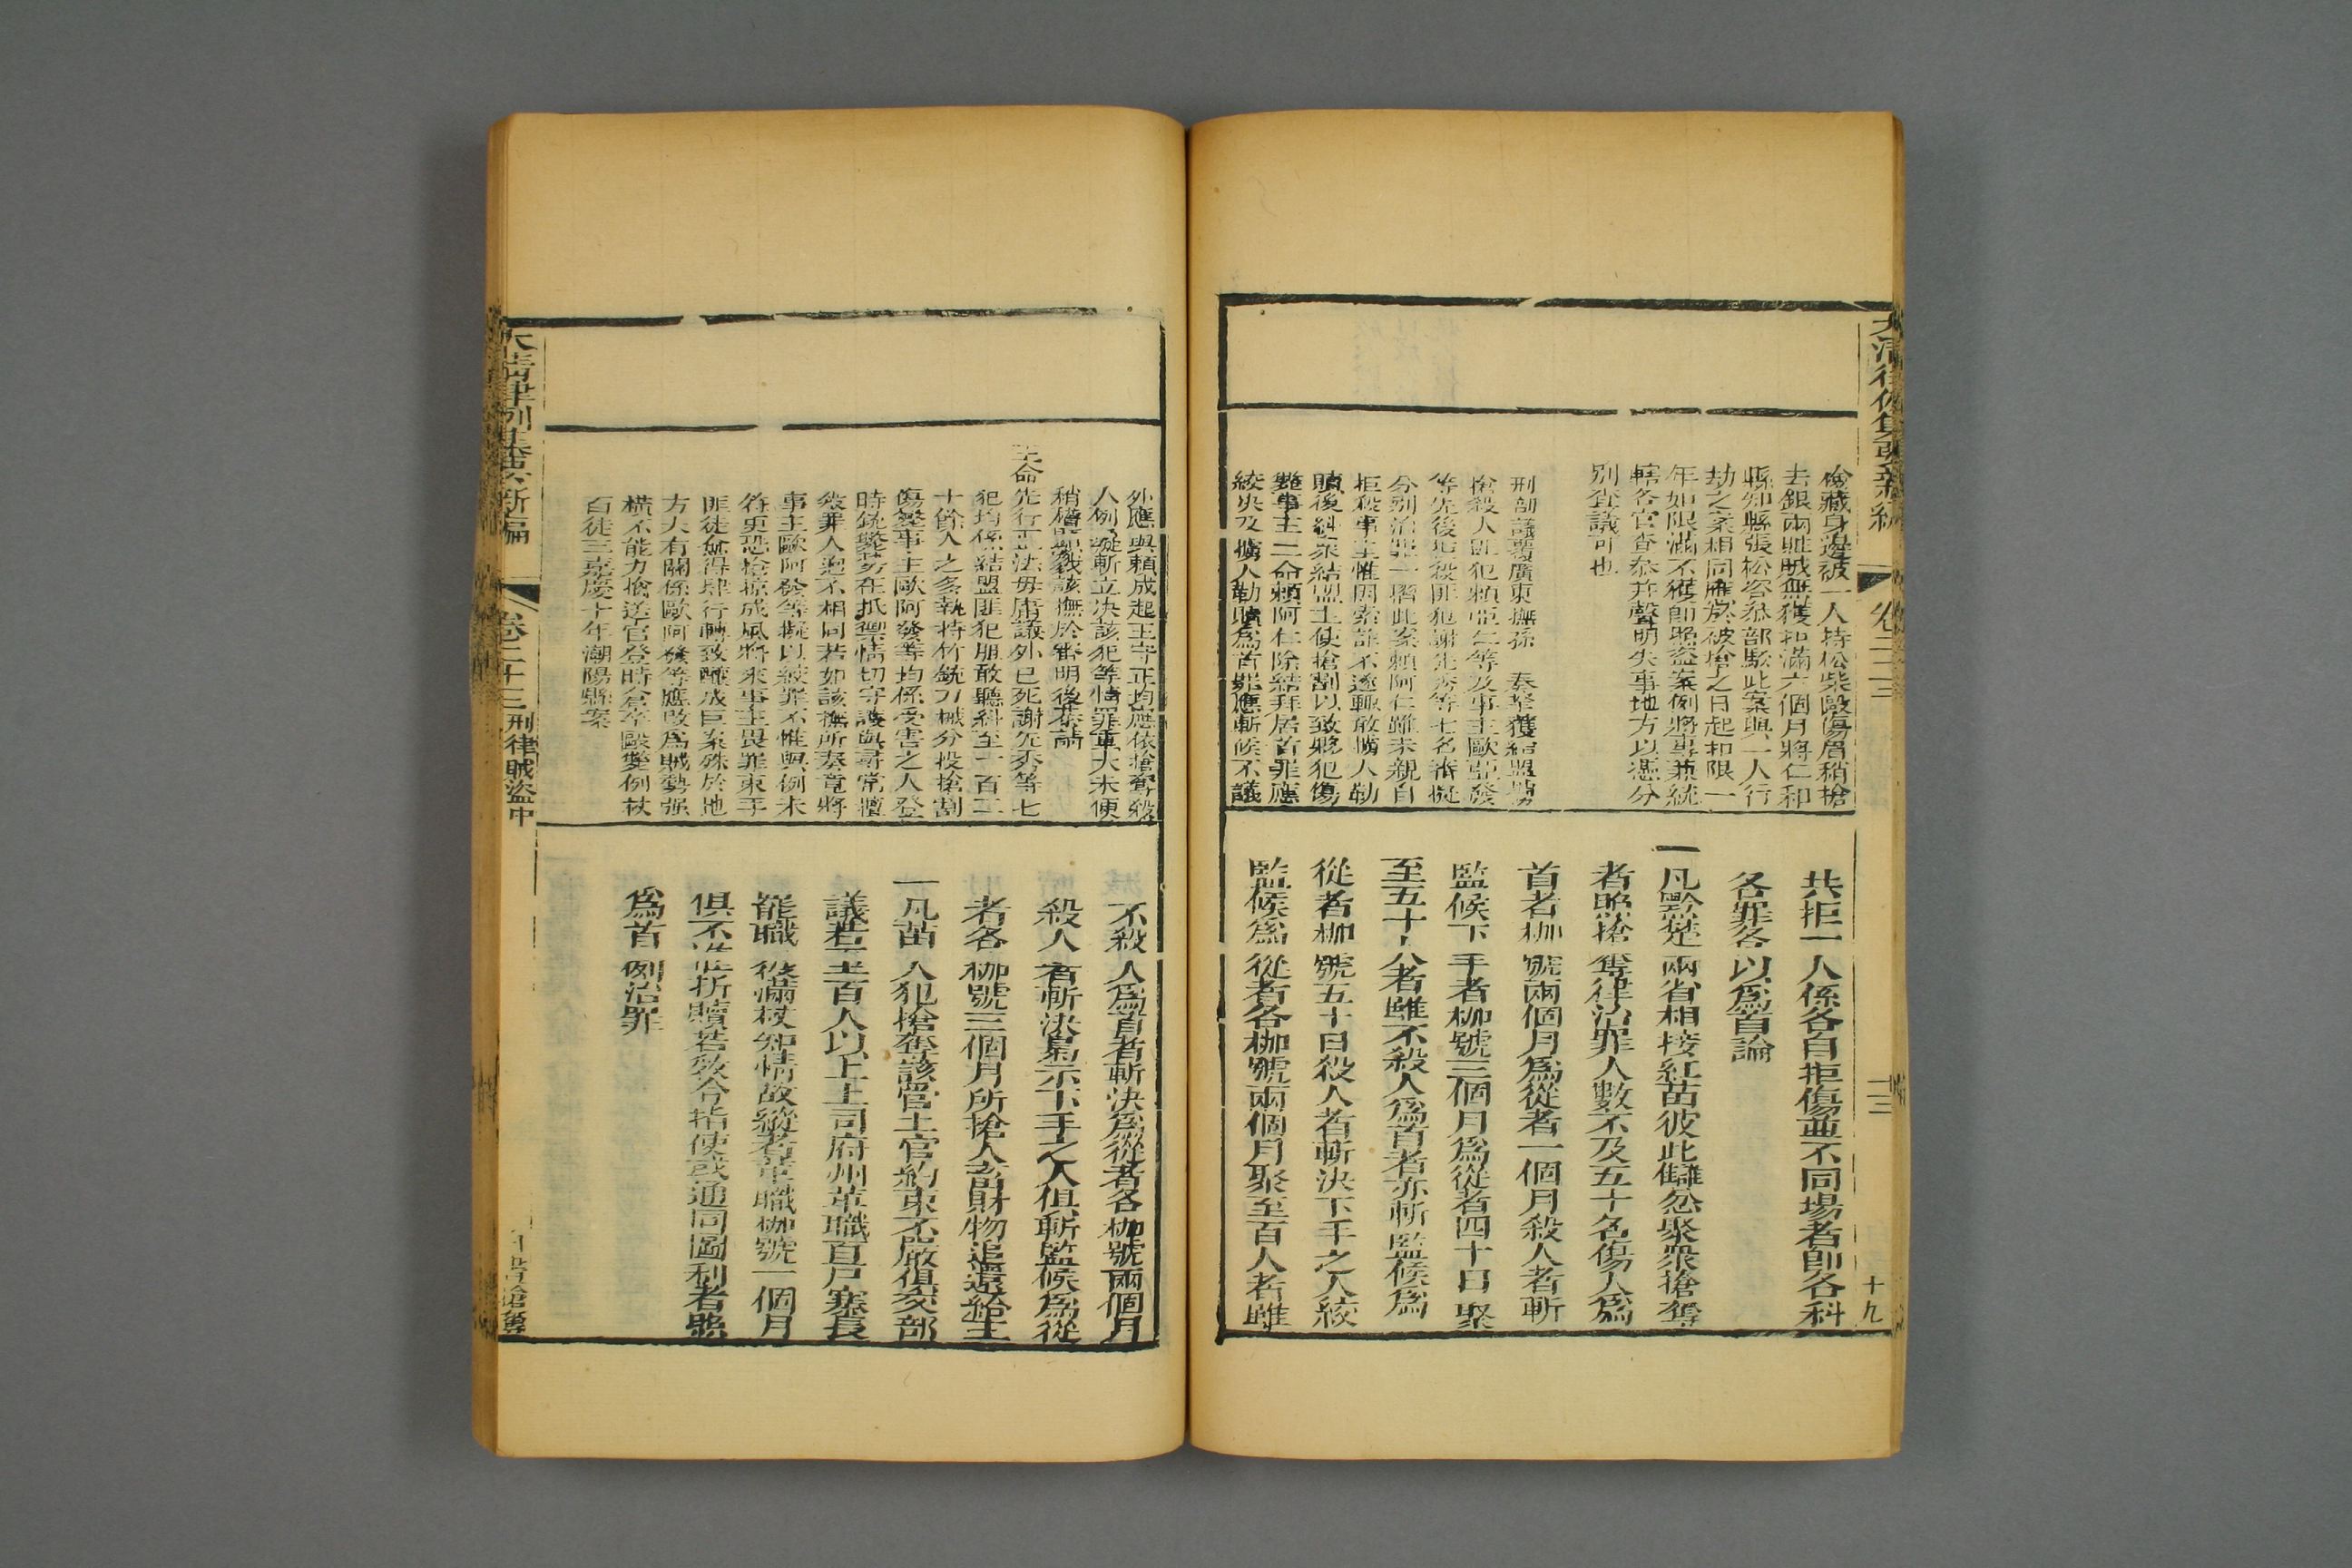 大清律例集要新編
卷二十三
十九
搶藏身邊被一人持松柴毆傷眉稍搶
去銀兩賍賊無獲扣滿六個月將仁和
縣知縣張松容叅部駁此案與一人行
劫之案相同應於被搶之日起扣限一
年如限滿不獲卽照盜案例將專兼統
轄各官查叅并聲明失事地方以憑分
別查議可也
刑部議覆廣東撫孫 奏拏獲結盟搶
搶殺人匪犯賴亞仁等及事主歐亞發
等先後拒殺匪犯謝先秀等七名審擬
分別治罪一摺此案賴阿仁雖未親自
拒殺事主惟因索詐不遂輒敢擄人勒
贖後糾衆結盟主使搶割以致夥犯傷
斃事主二命賴阿仁除結拜居首罪應
絞決及擄人勒贖爲首罪應斬候不議
共拒一人係各自拒傷並不同場者卽各科
各罪各以爲首論
一凡黔楚兩省相接紅苗彼此讎忿聚衆搶奪
者照搶奪律治罪人數不及五十名傷人爲
首者枷號兩個月爲從者一個月殺人者斬
監候下手者枷號三個月爲從者四十日聚
至五十人者雖不殺人爲首者亦斬監候爲
從者枷號五十日殺人者斬決下手之人絞
監候爲從者各枷號兩個月聚至百人者雖
外應與賴成起王守正均應依搶奪殺
人例擬斬立決該犯等情罪重大未便
稍稽顯戮該撫於審明後恭請
王命先行正法毋庸議外已死謝先秀等七
犯均係結盟匪犯胆敢聽糾至一百二
十餘人之多執持竹銃刀械分投搶割
傷斃事主歐阿發等均係受害之人登
時銃斃勢在抵禦情切守護與尋常擅
殺罪人迥不相同若如該撫所奏竟將
事主歐阿發等擬以絞罪不惟與例未
符更恐搶掠成風將來事主畏罪束手
匪徒益得肆行轉致釀成巨案殊於地
方大有關係歐阿發等應改爲賊勢强
橫不能力擒送官登時倉卒毆斃例杖
百徒三嘉慶十年潮陽縣案
不殺人爲首者斬決爲從者各枷號兩個月
殺人者斬決梟示下手之人俱斬監候爲從
者各枷號三個月所搶人畜財物追還給主
一凡苗人犯搶奪該管土官約束不嚴俱交部
議若至百人以上土司府州革職百戶寨長
罷職役滿杖知情故縱者革職枷號一個月
俱不准折贖若教令指使或通同圖利者照
爲首例治罪
大清律例集要新編
卷二十三
刑律賊盜中
白晝搶奪